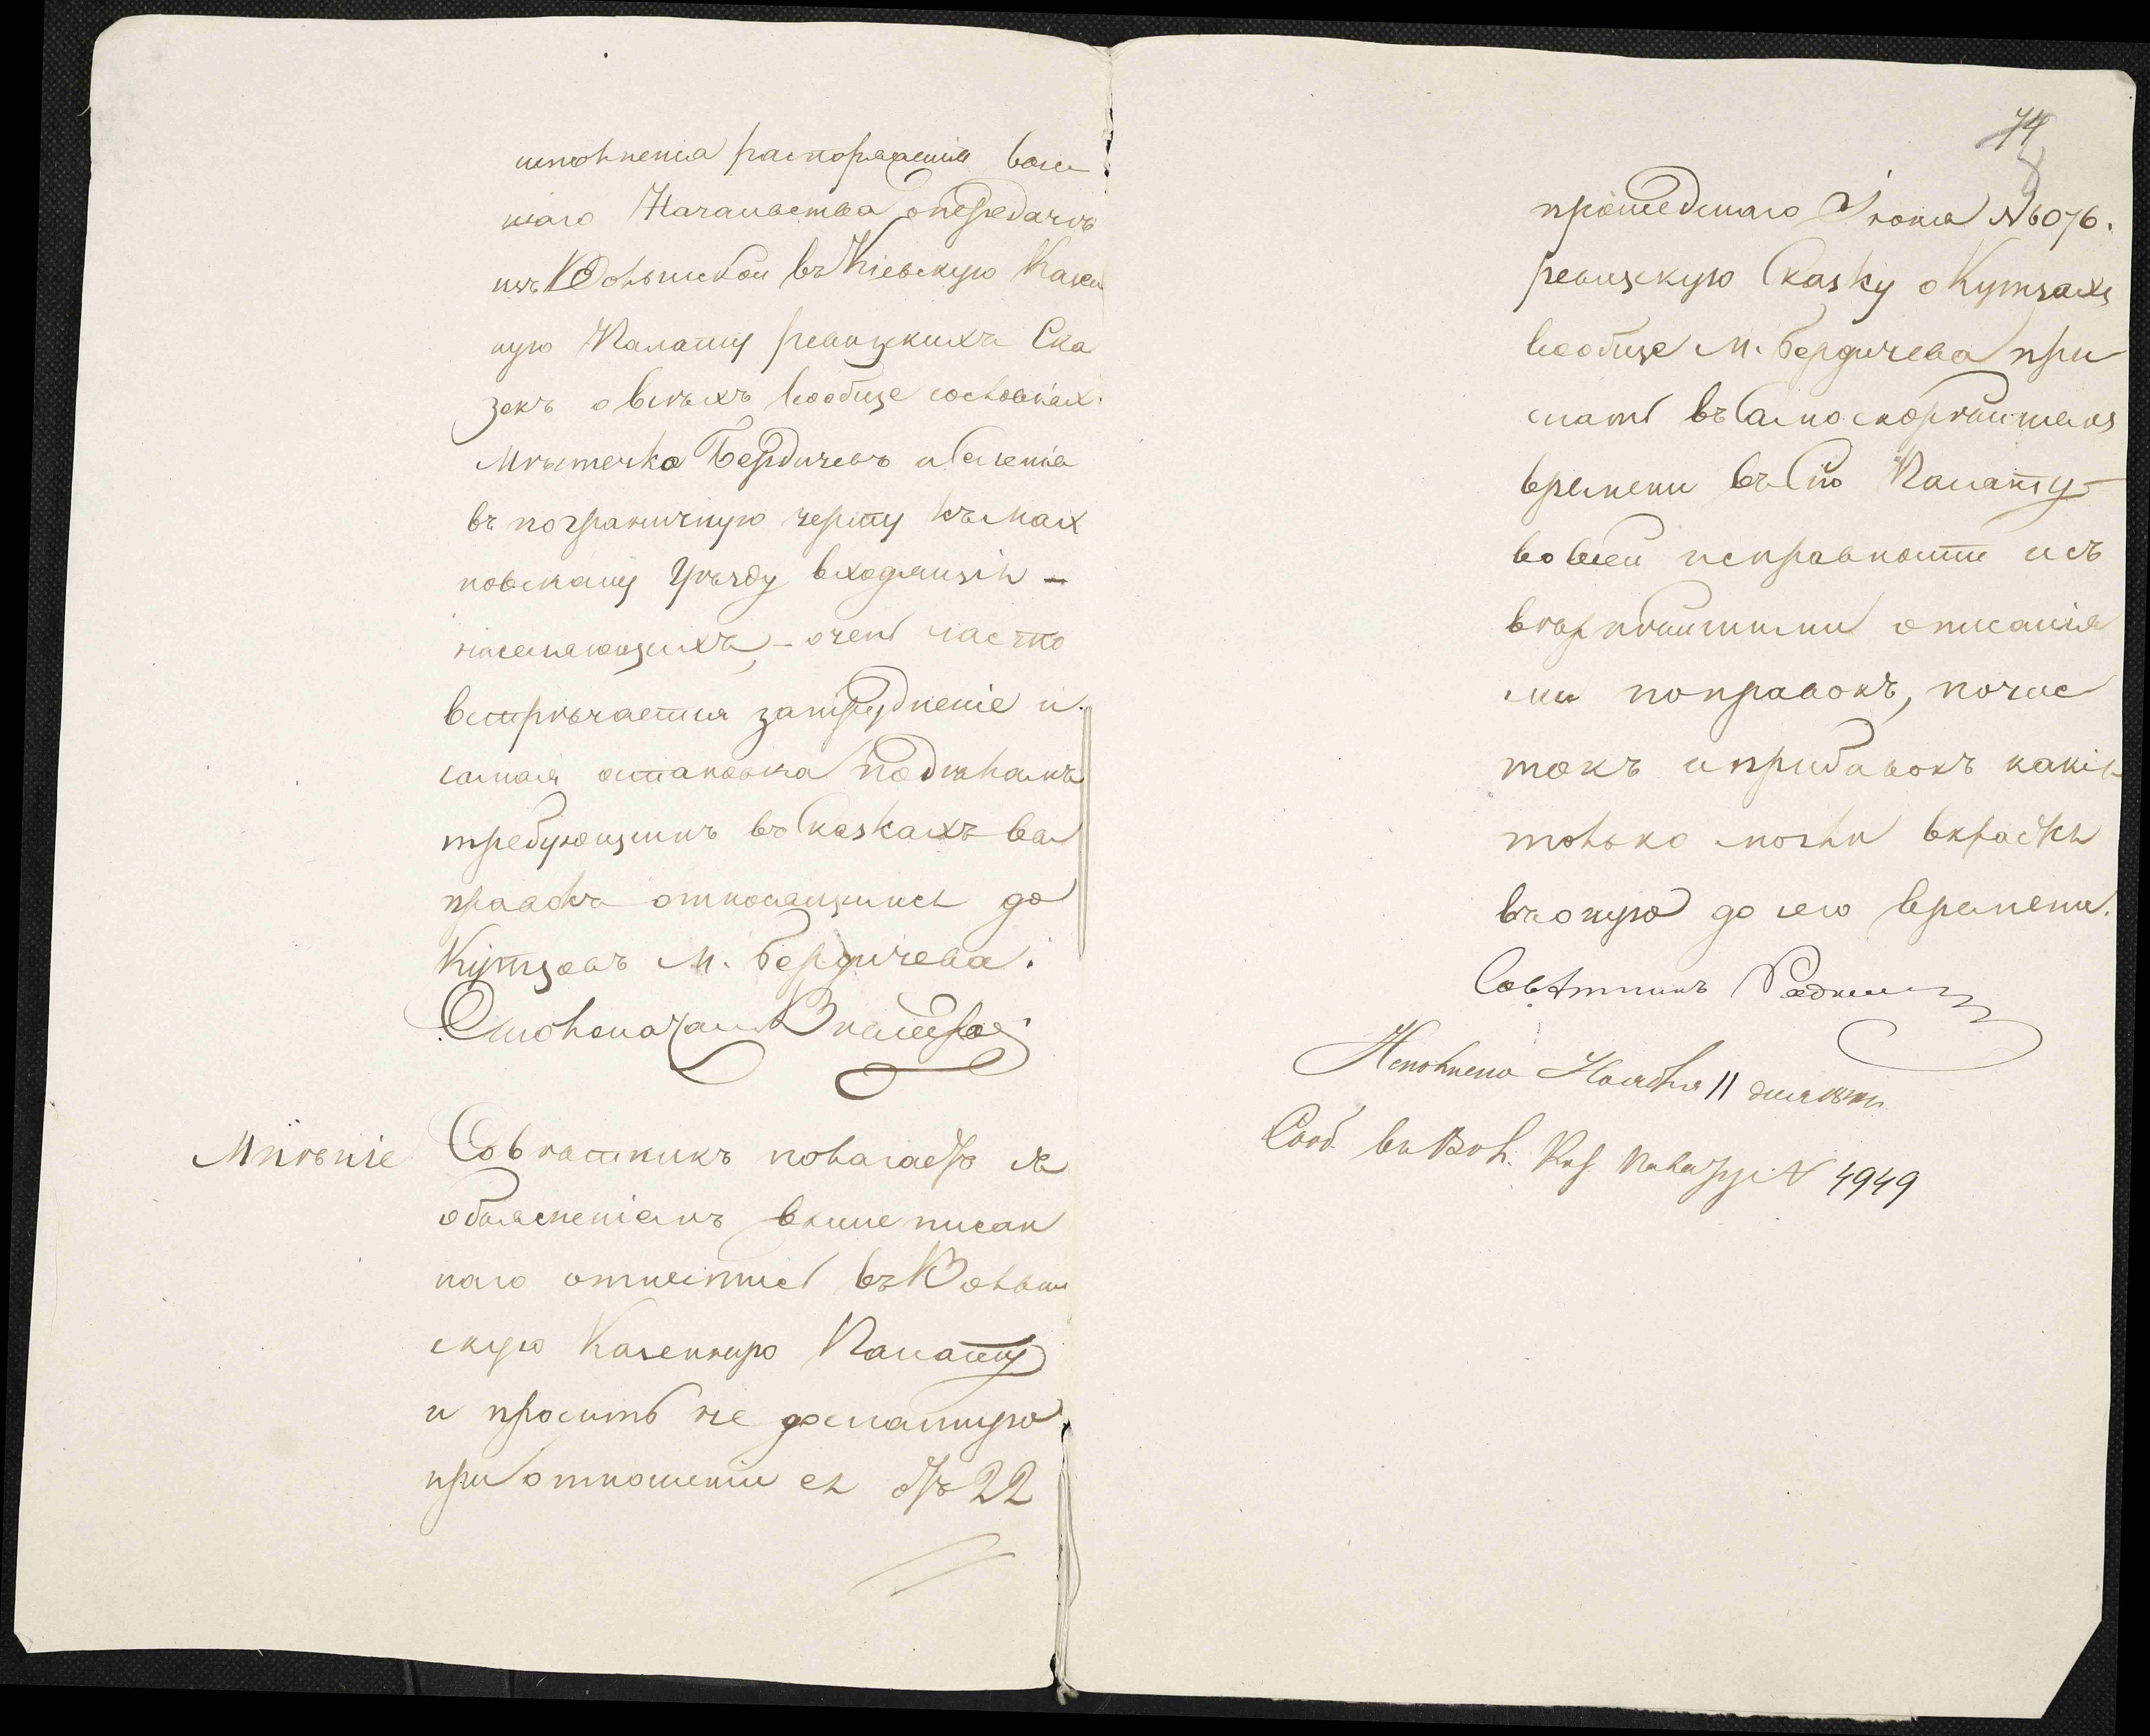 исполненія распоряженія выс
шаго Начальства о передачѣ
изъ Волынской въ Кіевскую Казен
ную Палату ревизскихъ Ска
зокъ о всѣхъ вообще сословіях
Мѣстечко Бердичевъ и Селенія
въ пограничную черту къ Мах
новскому Уѣзду входящія –
населяющихъ, – очень часто
встрѣчается затрудненіе и
самая остановка по дѣламъ
требующимъ въ Сказкахъ вы
правокъ относящимся до
Купцовъ М. Бердичева.
Столоначальн
Мнѣніе
Совѣтникъ полагаетъ съ
объясненіемъ выше писан
наго отнестись въ Волын
скую Казенную Палату
и просить не досланную
при отношеніи ея отъ 22
74
8
прошедшаго Іюня № 6076.
ревизскую Сказку о Купцахъ
вообще М. Бердичева при
слать въ Самоскорѣйшемъ
времени въ Сію Палату
во всей исправности и съ
вѣрнѣйшими описанія
ми поправокъ, почис
токъ и прибавокъ какія
только могли вкрасться
въ оную до сего времени.
Совѣтникъ
Исполнено Ноября 11 дня
Сооб. въ Вол. Каз. Палату № 4949